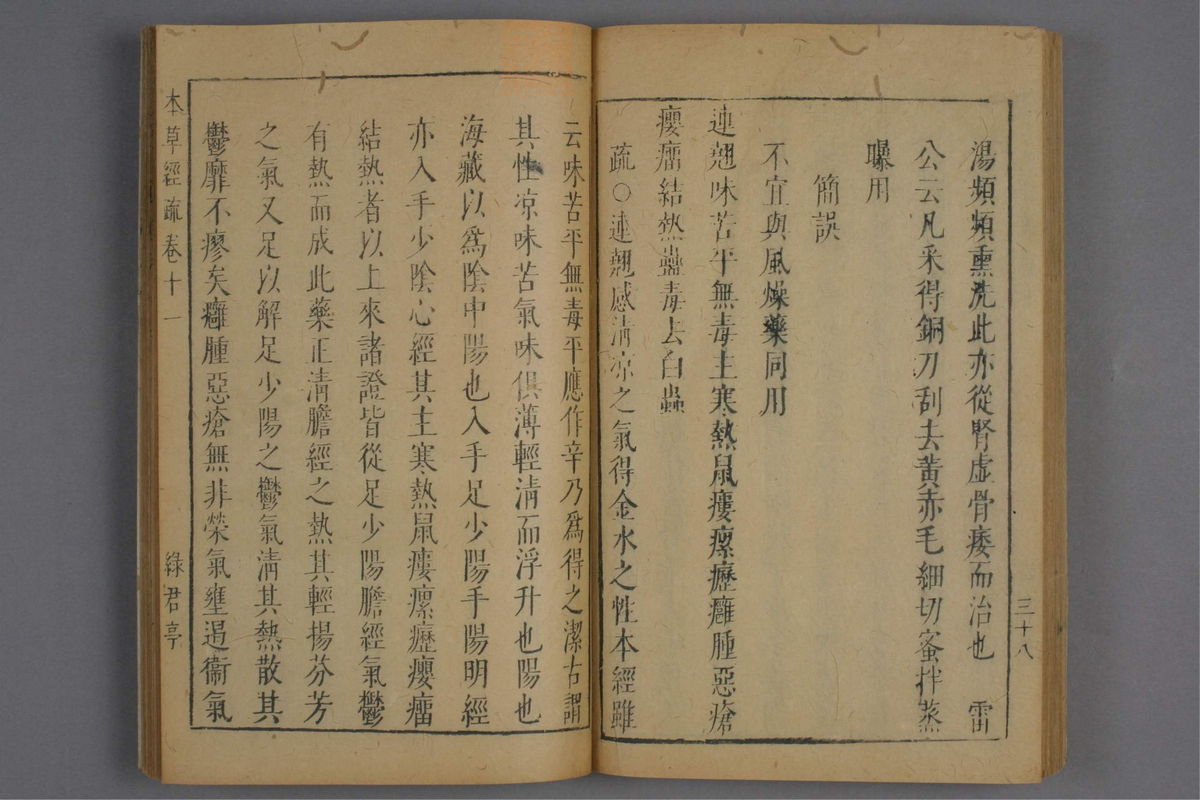 三十八
湯頻頻熏洗此亦從腎虛骨痿而治也　雷
公云凡采得銅刀刮去黃赤毛細切蜜拌蒸
曝用
簡誤
不宜與風燥藥同用
連翹味苦平無毒主寒熱鼠瘻瘰癧癰腫惡瘡
癭瘤結熱蠱毒去白蟲
疏○連翹感淸凉之氣得金水之性本經雖
云味苦平無毒平應作辛乃爲得之潔古謂
其性凉味苦氣味俱薄輕淸而浮升也陽也
海藏以爲陰中陽也入手足少陽手陽明經
亦入手少陰心經其主寒熱鼠瘻瘰癧癭瘤
結熱者以上來諸證皆從足少陽膽經氣鬱
有熱而成此藥正淸膽經之熱其輕揚芬芳
之氣又足以解足少陽之鬱氣淸其熱散其
鬱靡不瘳矣癰腫惡瘡無非榮氣壅遏衞氣
本草經疏卷十一
綠君亭